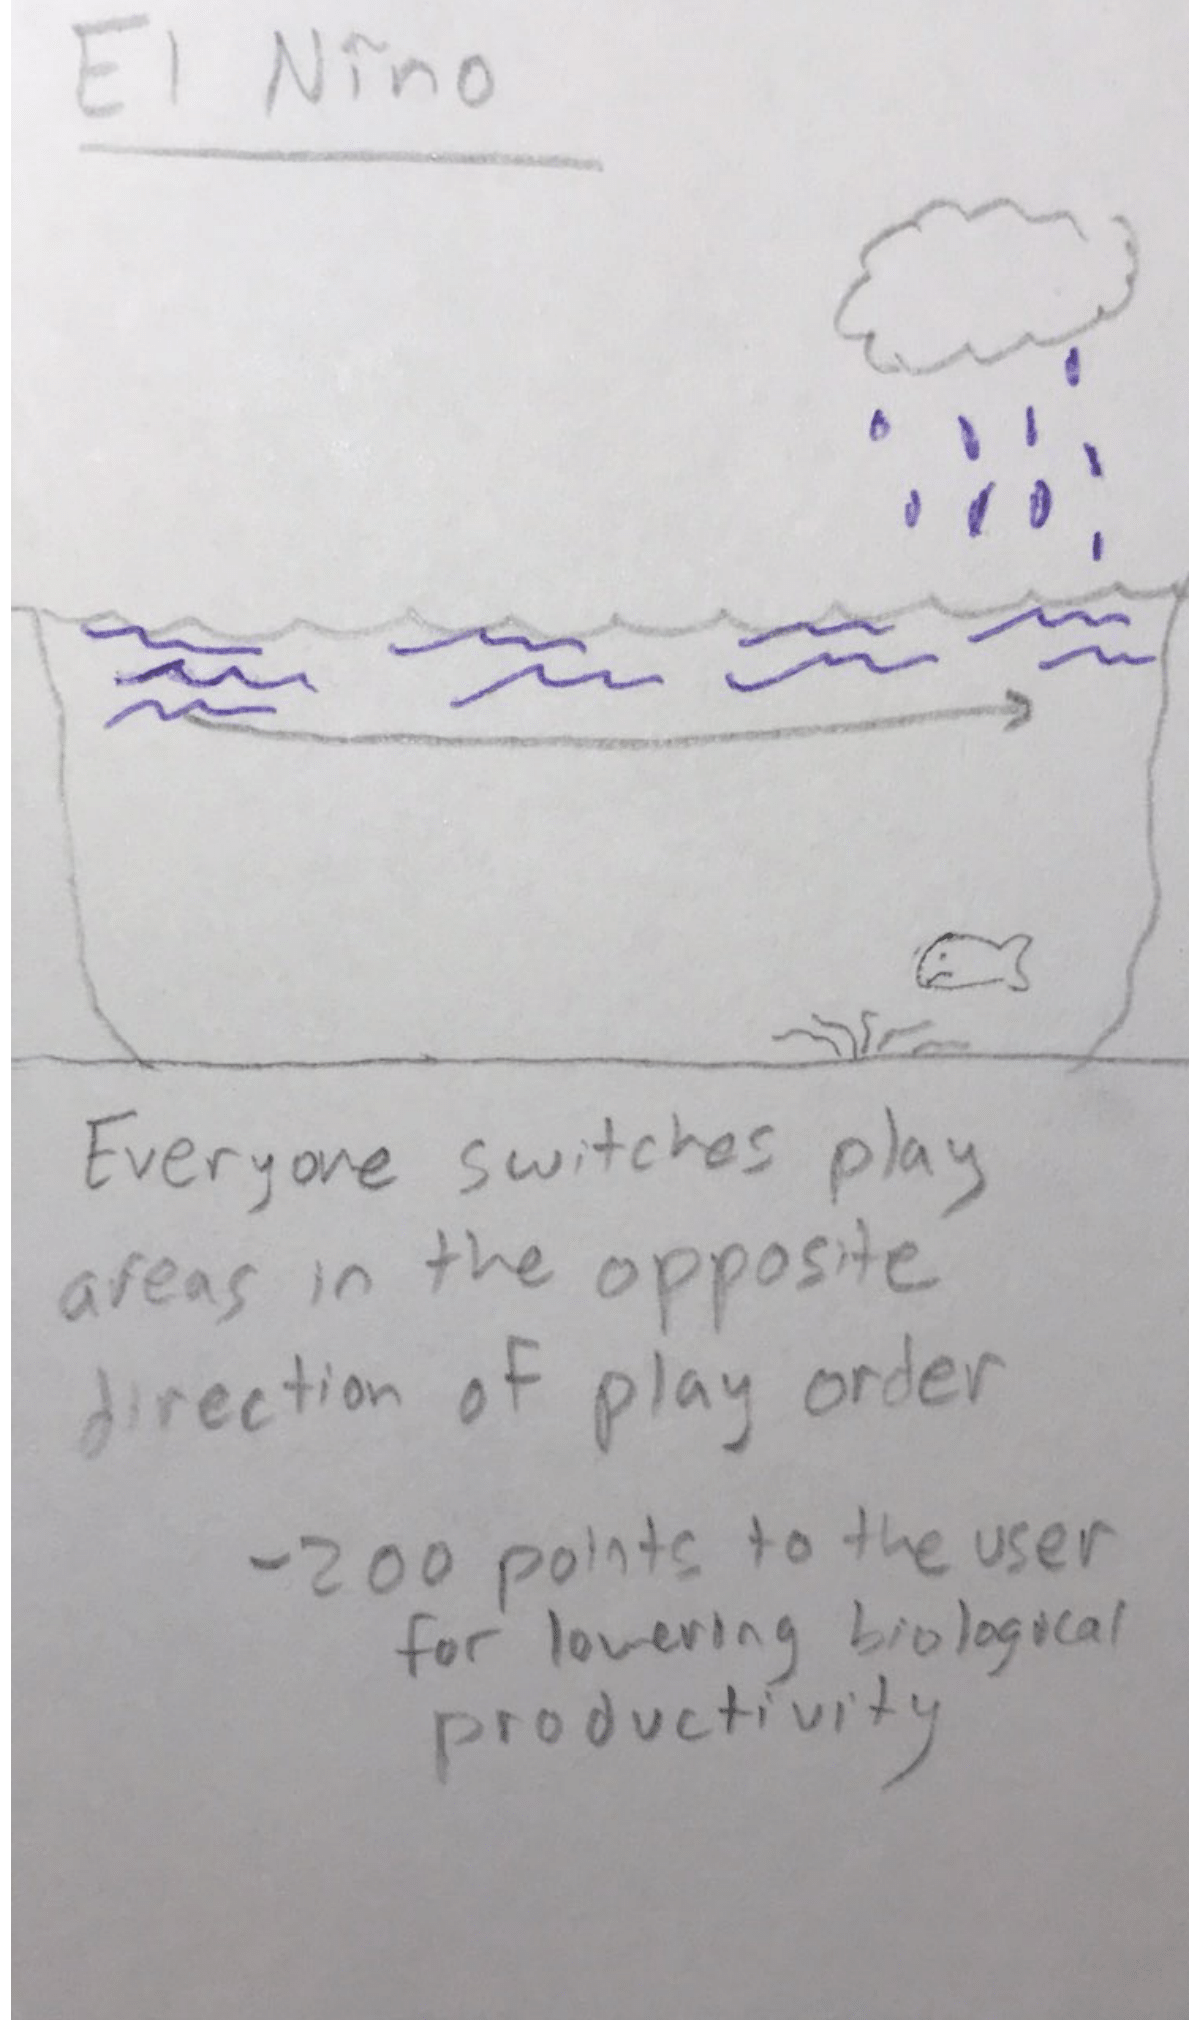 El Nĩno
Everyone switches play
areas in the opposite
direction of play order
-200 points to the user
for lowering biological
productivity